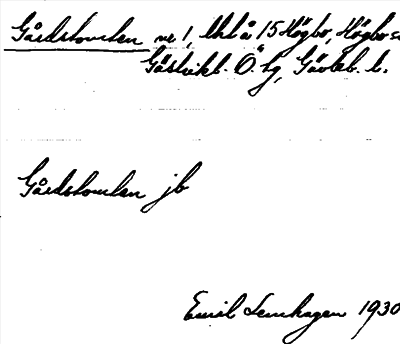 Gårdstomten nr 1, Utlå 15 Högbo, Högbo s
Gästrikl. Ö. tg, Gävleb. l.
Gårdstomten jb
Emil Lennhagen 1930